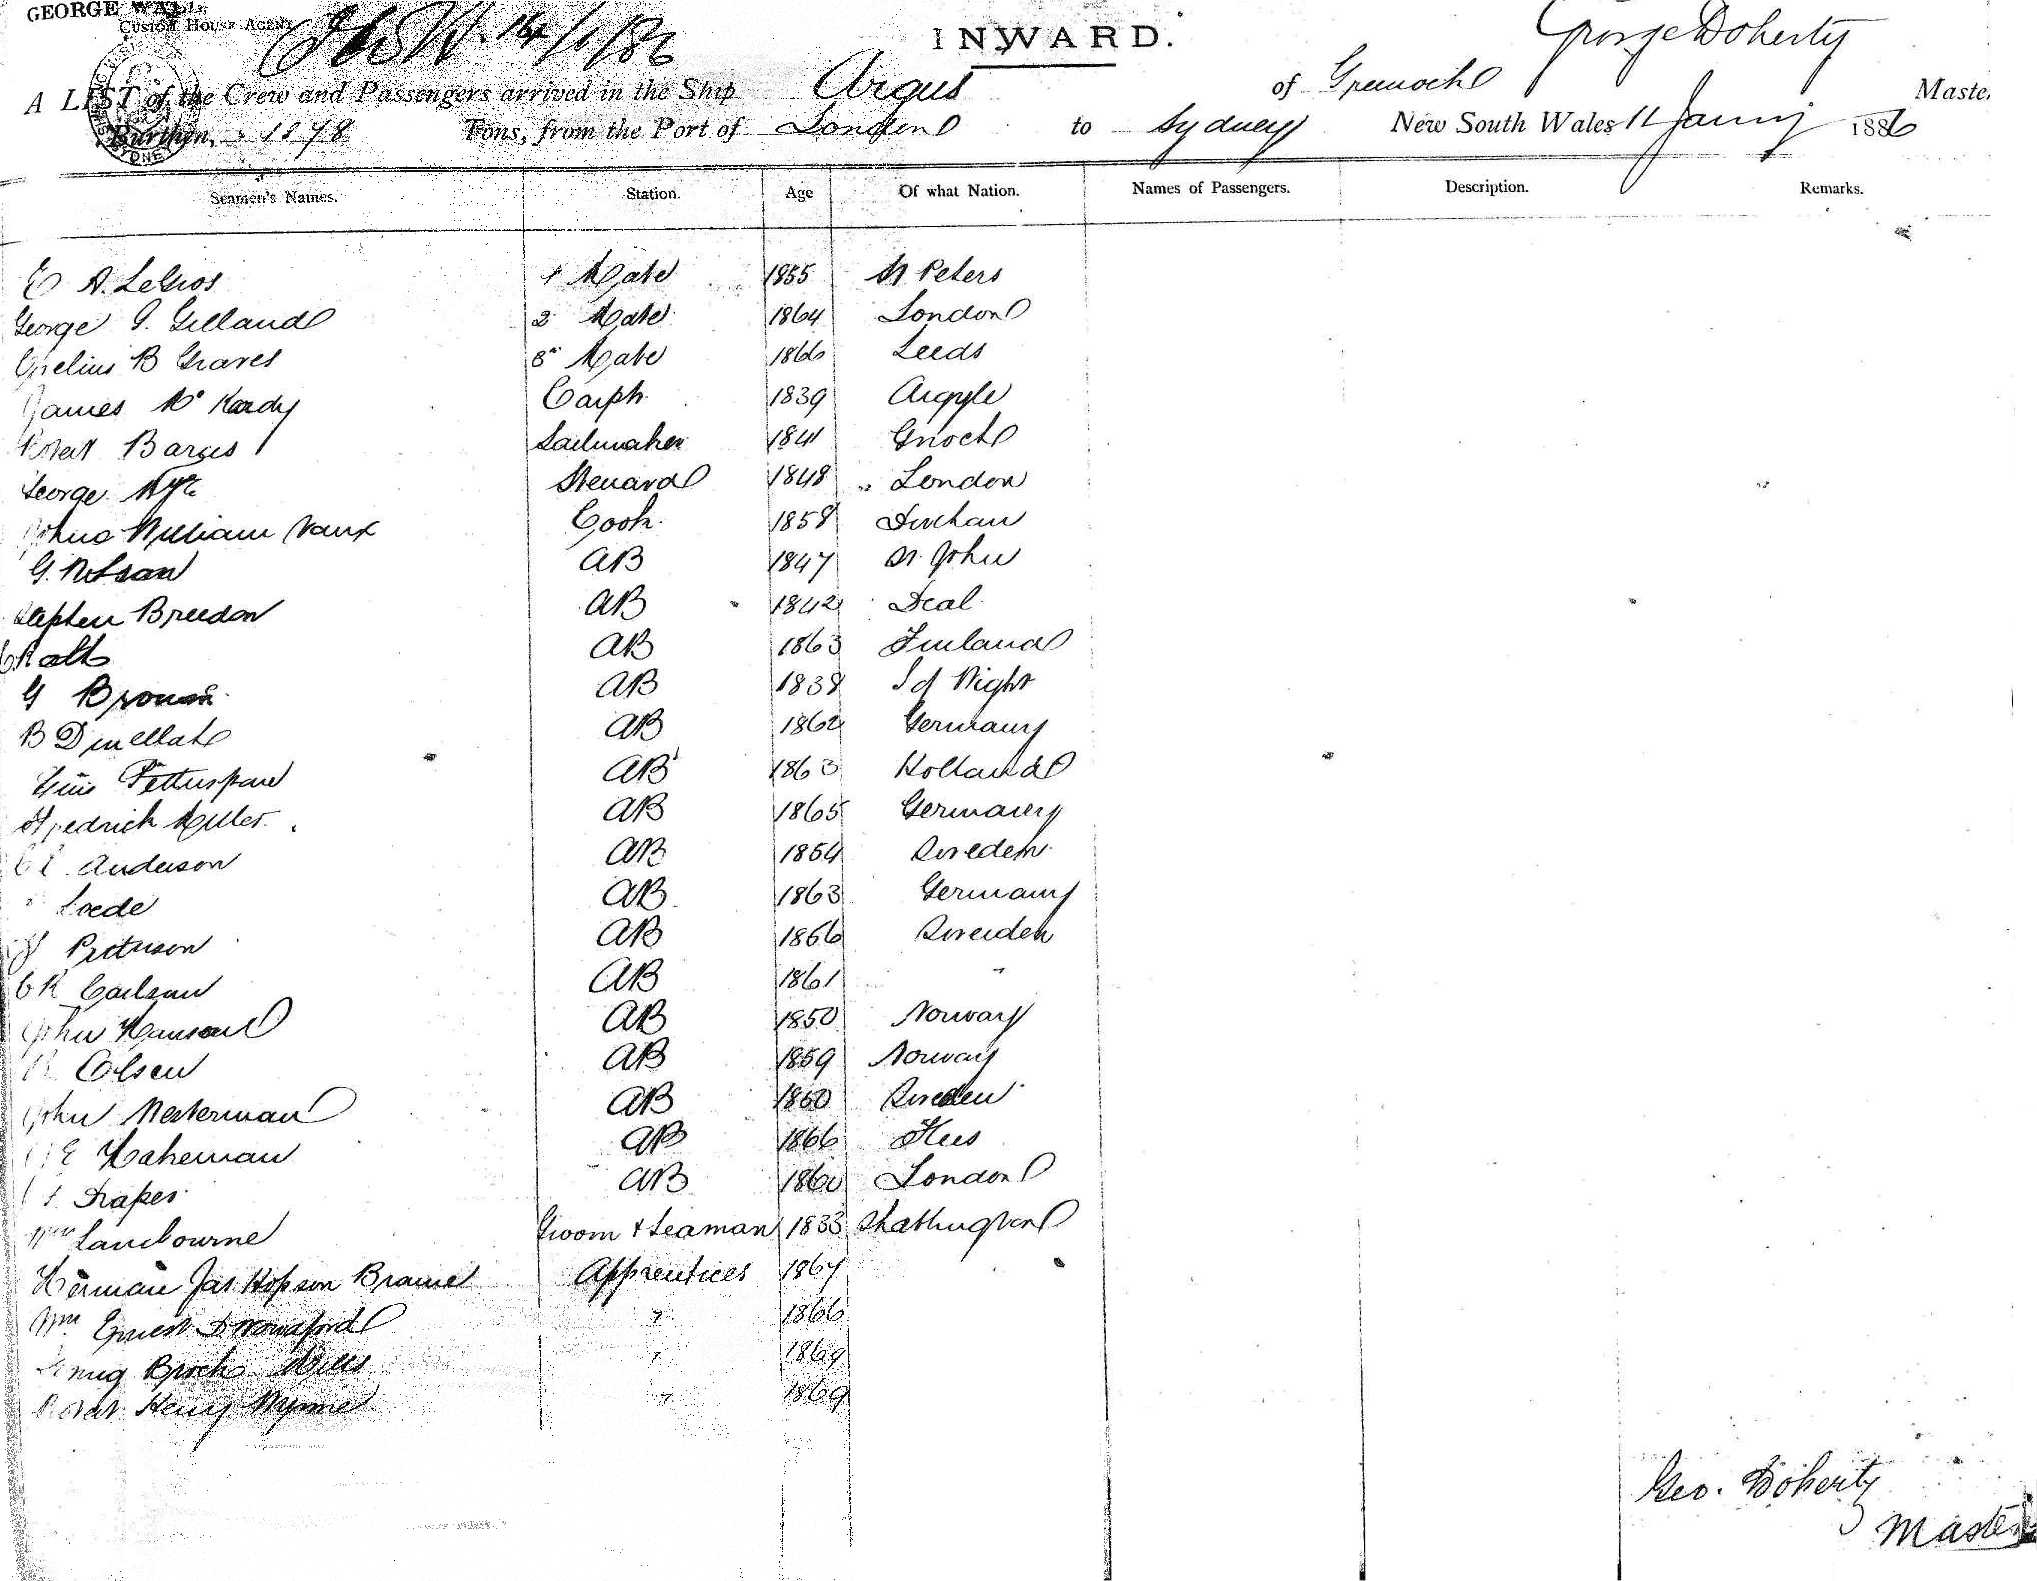 GEORGE WALL
Custom House Agent
14/1/86
INWARD.
George Doherty
A LIST of the Crew and Passengers arrived in the Ship Argus of Greenock Maste
Burthen, 1578 Tons, from the Port of London to Sydney New South Wales 11 Jany 1886
Seamen's Names. Station. Age Of what Nation. Names of Passengers. Description. Remarks.
E A. LeGros 1 Mate 1855 St Peters
George G. Gilland 2 Mate 1864 London
B Graves 3rd Mate 1866 Leeds
James Mc Kardy Carptr 1839 Argyle
Robert Barges Sailmaker 1841 Gnock
George Steward 1848 London
William Vaux Cook 1858
G. AB 1847 St. John
Stephen Breedon AB 1842 Deal
AB 1863 Finland
G Brown AB 1838 I of Wight
B AB 1862 Germany
AB 1863 Holland
Fredrick Miller AB 1865 Germany
Anderson AB 1854 Sweden
Loede AB 1863 Germany
Petterson AB 1866 Sweiden
C R Carlson AB 1861 "
John Hansen AB 1850 Norway
R Olsen AB 1859 Norway
John Westerman AB 1860 Sweden
E Hakeman AB 1866
Draper AB 1860 London
Wm Lambourne Groom & Seaman 1833
Herman Jas Hopson Brame Apprentices 1867
Wm Ernest " 1866
Brock Mills " 1869
Robt Henry Wynne " 1869
Geo. Doherty
Master